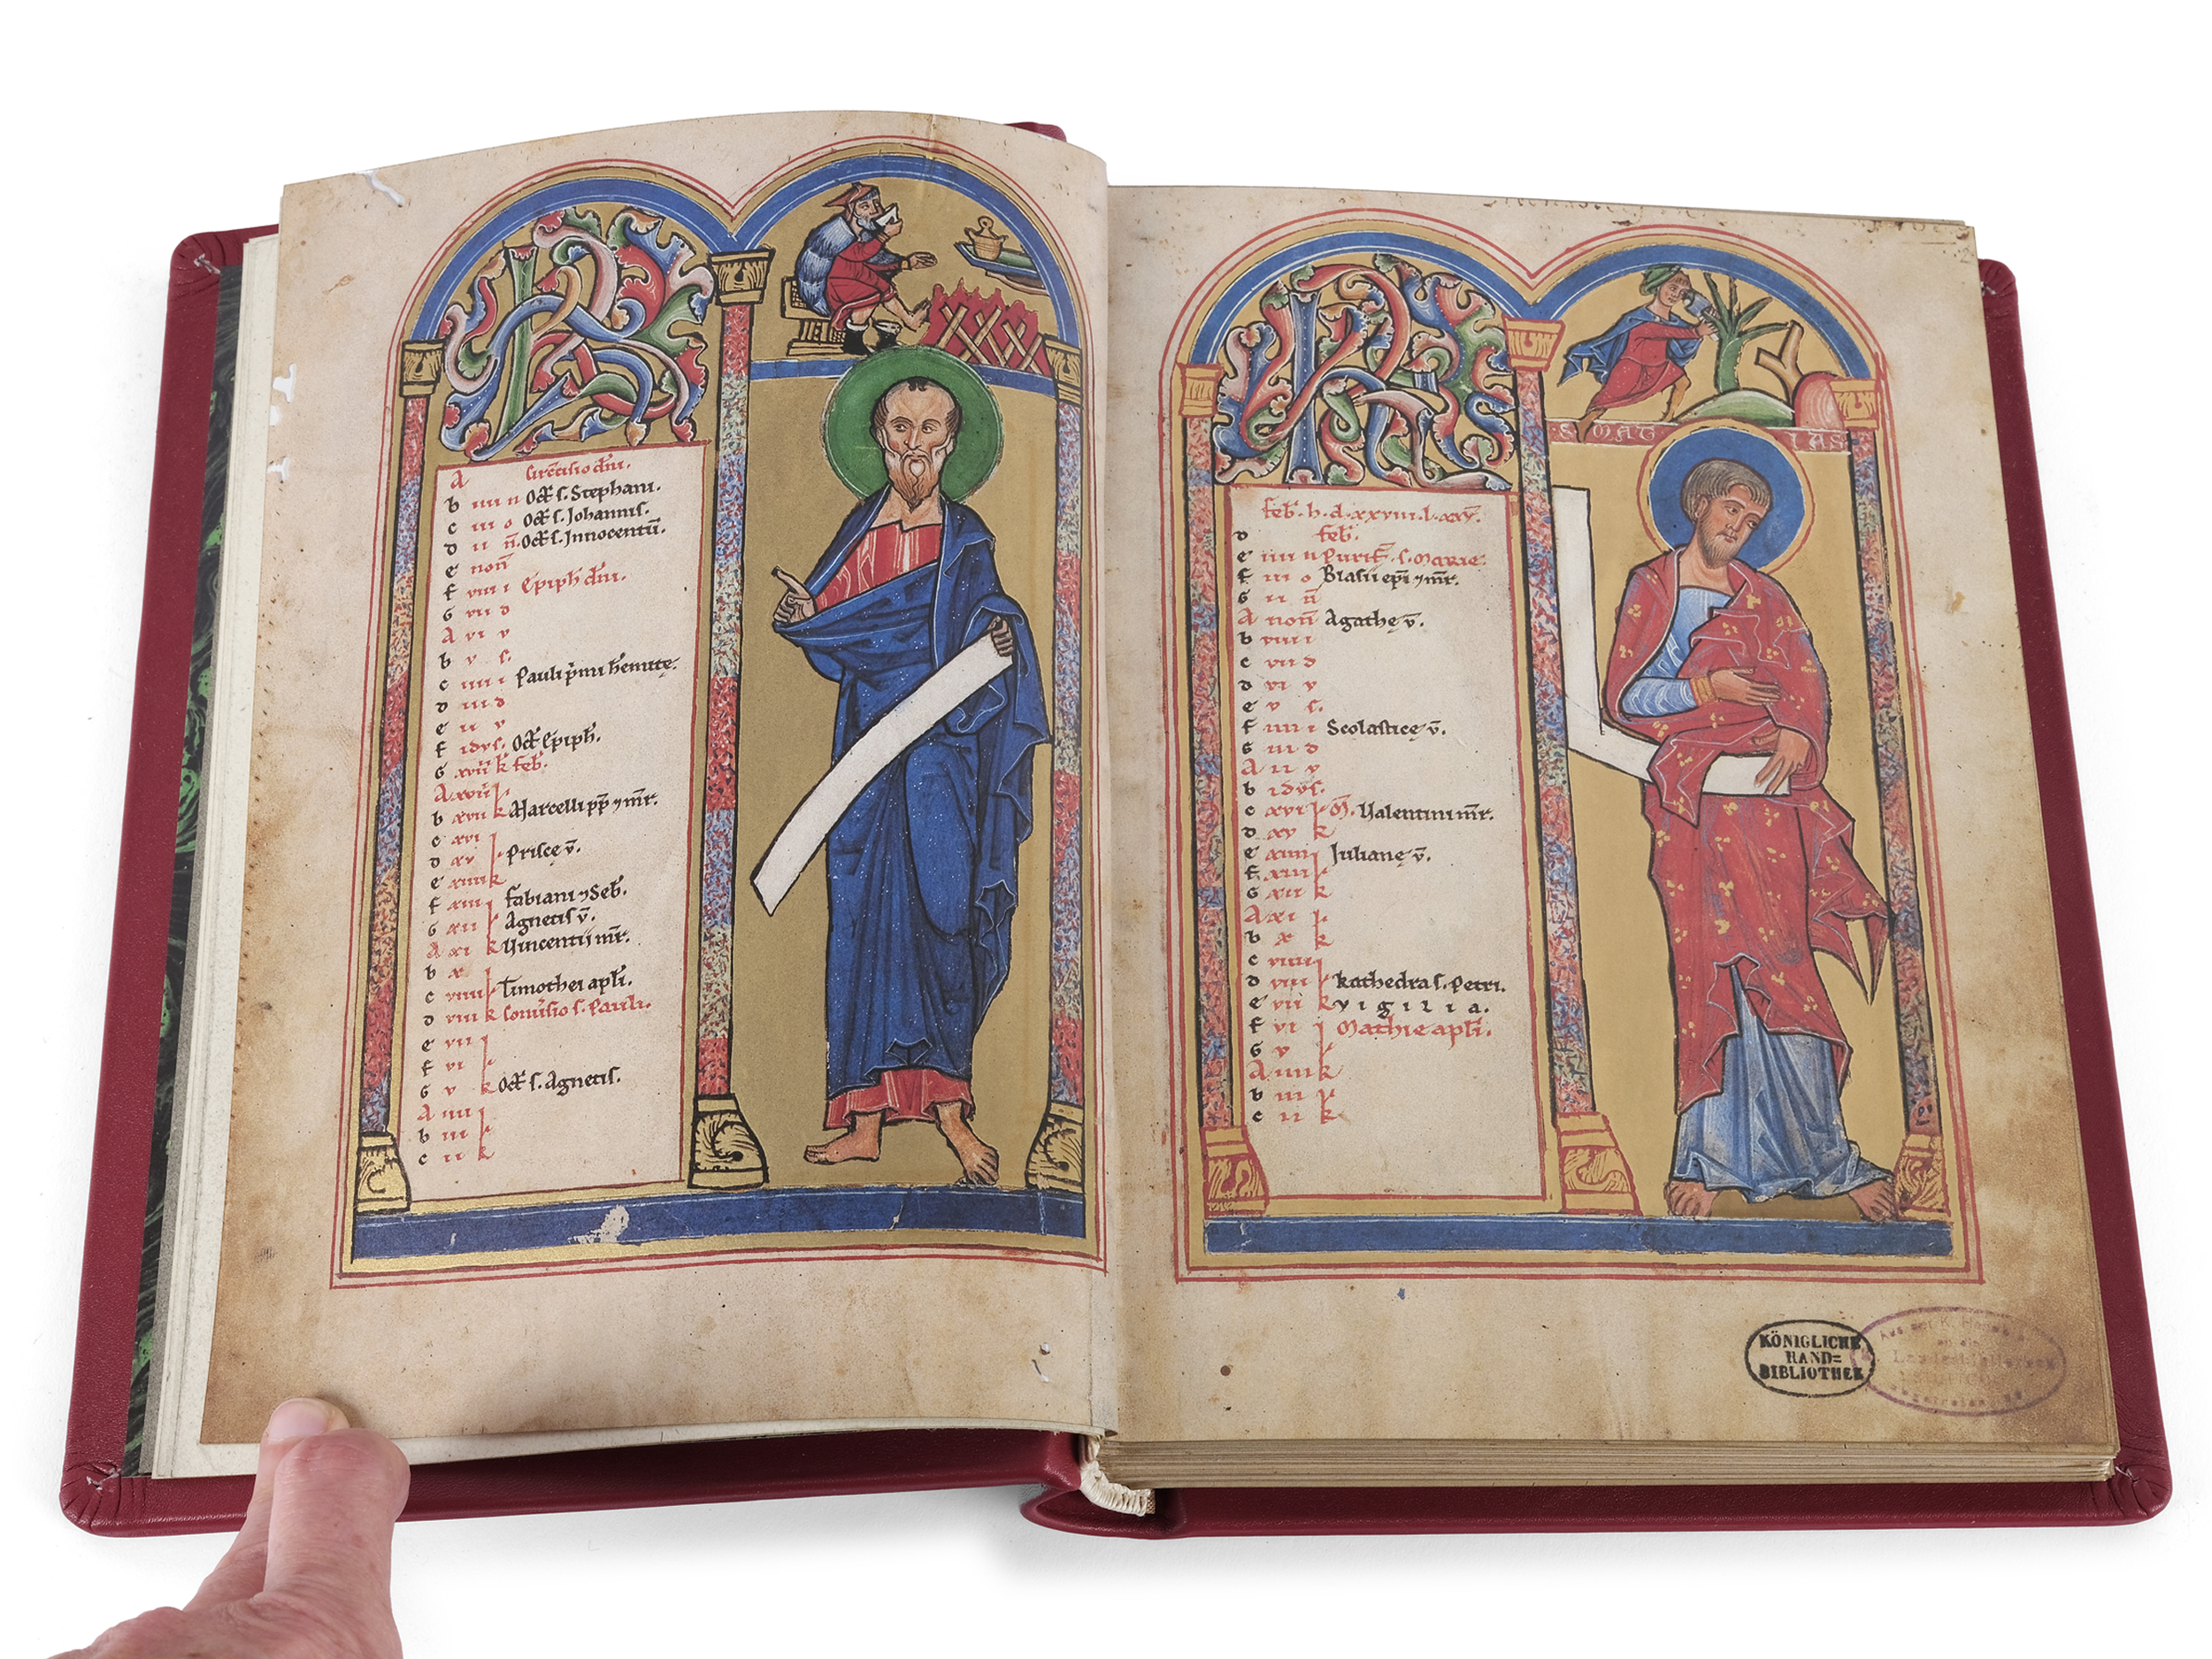 KL
A Circūcisio dn̄i.
b iiii n Oct̄ s. Stephani.
c iii o Oct̄ s. Johannis.
d ii n̄. Oct̄ s. Innocentū.
e non̄
f viii i Epiph̄ dn̄i.
G vii d
A vi v
b v s.
c iiii i Pauli p̄mi h̄emite.
d iii d
e ii v
f idvs. Oct̄ epiph̄.
G xviiii k̄ feb̄.
A xviii
b xvii k Marcelli pp̄ ⁊ mr̄.
c xvi l
d xv l Prisce v̄.
e xiiii k
f xiii l fabiani ⁊ Seb̄.
G xii l Agnetis v̄.
A xi k Vincentii mr̄.
b x l
c viiii l Timothei apl̄i.
d viii k Conv̄sio s. Pauli.
e vii l
f vi l
G v k Oct̄ s. Agnetis.
A iiii l
b iii l
c ii k
S MAT IAS
KL
feb̄. h. d. xxviii. l. xxx.
d feb̄.
e iiii n Purif̄. s. Marie.
f iii o Blasii ep̄i ⁊ mr̄.
G ii n̄
A non̄ Agathe v̄.
b viii i
c vii d
d vi v
e v s.
f iiii i Scolastice v̄.
G iii d
A ii v
b idvs.
c xvi l m̄. Valentini mr̄.
d xv k
e xiiii l Juliane v̄.
f xiii l
G xii k
A xi l
b x k
c viiii l
d viii l kathedra s. Petri.
e vii k vigilia.
f vi l Mathie apl̄i.
G v l
A iiii k
b iii l
c ii k
KÖNIGLICHE
HAND=
BIBLIOTHEK
Aus der K.